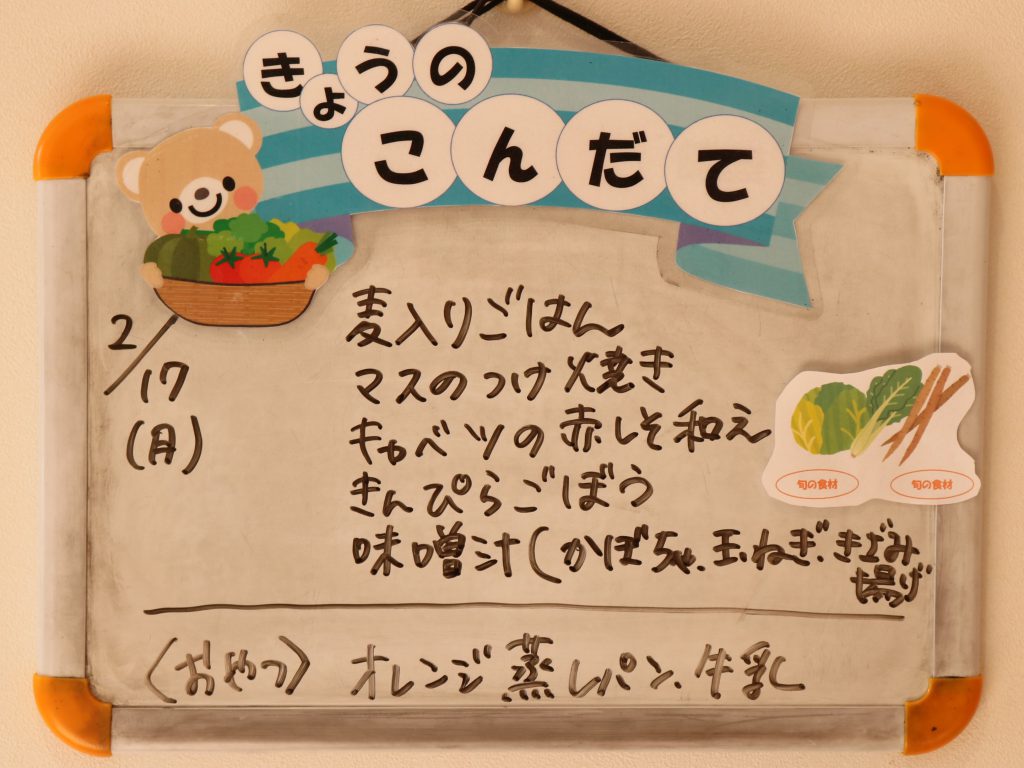 きょうの
こんだて
2/17
(月)
麦入りごはん
マスのつけ焼き
キャベツの赤しそ和え
きんぴらごぼう
味噌汁(かぼちゃ、玉ねぎ、きざみ
揚げ
旬の食材 旬の食材
〈おやつ〉 オレンジ蒸しパン、牛乳